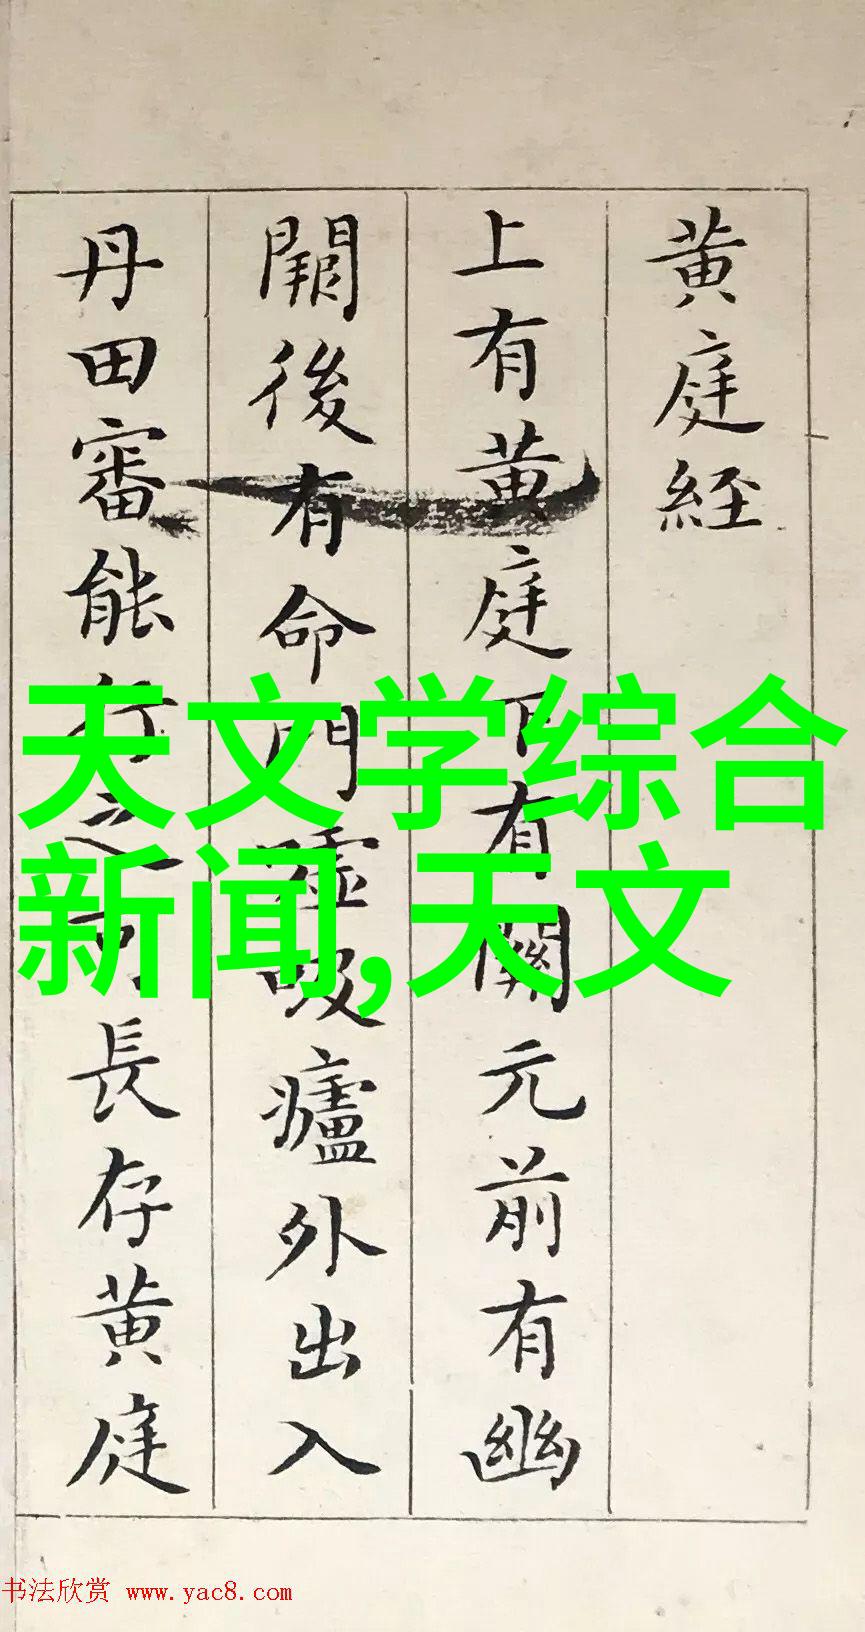 黄庭經
上有黄庭下有關元前有幽
闕後有命門噓吸廬外出入
丹田審能行之可長存黄庭
天文学综合
新闻,天文
书法欣赏 www.yac8.com